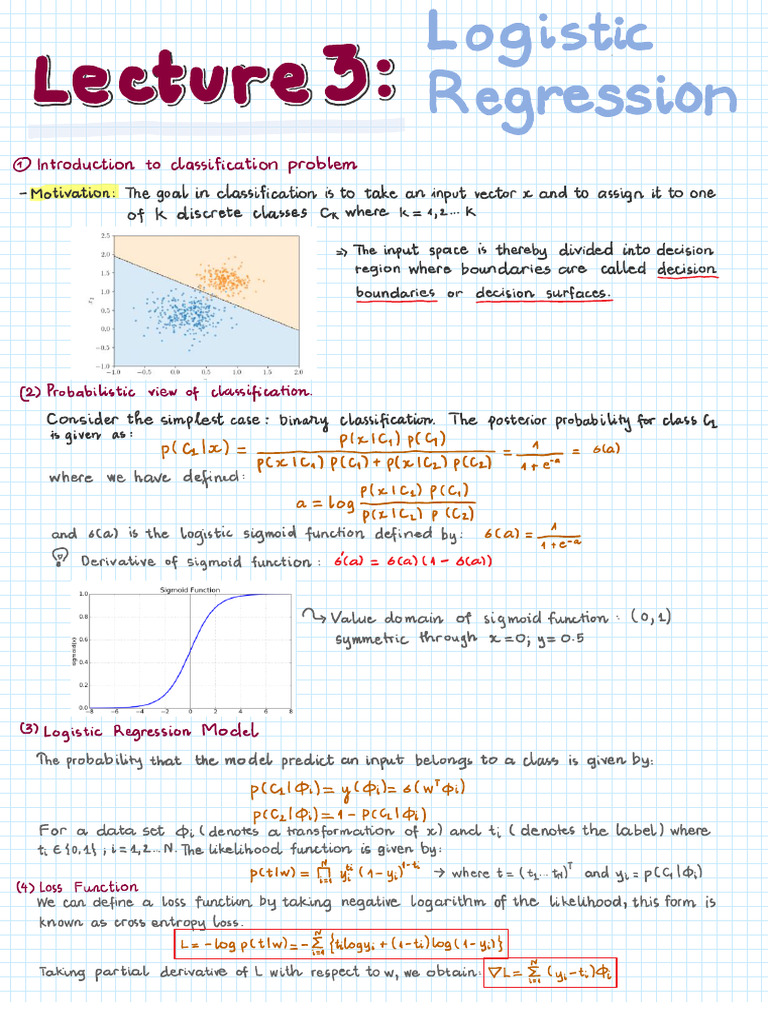 Lecture 3:
Logistic
Regression
① Introduction to classification problem
- Motivation: The goal in classification is to take an input vector x and to assign it to one
of K discrete classes Cₖ where k = 1,2... K
2.5
2.0
1.5
1.0
0.5
0.0
−0.5
−1.0
−1.0 −0.5 0.0 0.5 1.0 1.5 2.0
⇒ The input space is thereby divided into decision
region where boundaries are called decision
boundaries or decision surfaces.
(2) Probabilistic view of classification.
Consider the simplest case: binary classification. The posterior probability for class C₁
is given as:
p(C₁|x) = p(x|C₁) p(C₁) / p(x|C₁) p(C₁) + p(x|C₂) p(C₂) = 1 / 1 + e⁻ᵃ = σ(a)
where we have defined:
a = log p(x|C₁) p(C₁) / p(x|C₂) p(C₂)
and σ(a) is the logistic sigmoid function defined by: σ(a) = 1 / 1 + e⁻ᵃ
Derivative of sigmoid function: σ'(a) = σ(a)(1 - σ(a))
Sigmoid Function
sigmoid(x)
1.0
0.8
0.6
0.4
0.2
0.0
−8 −6 −4 −2 0 2 4 6 8
Value domain of sigmoid function: (0,1)
symmetric through x=0; y=0.5
(3) Logistic Regression Model
The probability that the model predict an input belongs to a class is given by:
p(C₁|Φᵢ) = y(Φᵢ) = σ(wᵀΦᵢ)
p(C₂|Φᵢ) = 1 - p(C₁|Φᵢ)
For a data set Φᵢ (denotes a transformation of x) and tᵢ (denotes the label) where
tᵢ ∈ {0,1}; i = 1,2... N. The likelihood function is given by:
p(t|w) = ∏ᵢ₌₁ᴺ yᵢ^tᵢ (1 - yᵢ)^1-tᵢ → where t = (t₁... tₙ)ᵀ and yᵢ = p(C₁|Φᵢ)
(4) Loss Function
We can define a loss function by taking negative logarithm of the likelihood, this form is
known as cross entropy loss.
L = -log p(t|w) = -∑ᵢ₌₁ᴺ {tᵢlogyᵢ + (1-tᵢ)log(1-yᵢ)}
Taking partial derivative of L with respect to w, we obtain: ∇L = ∑ᵢ₌₁ᴺ (yᵢ-tᵢ)Φᵢ